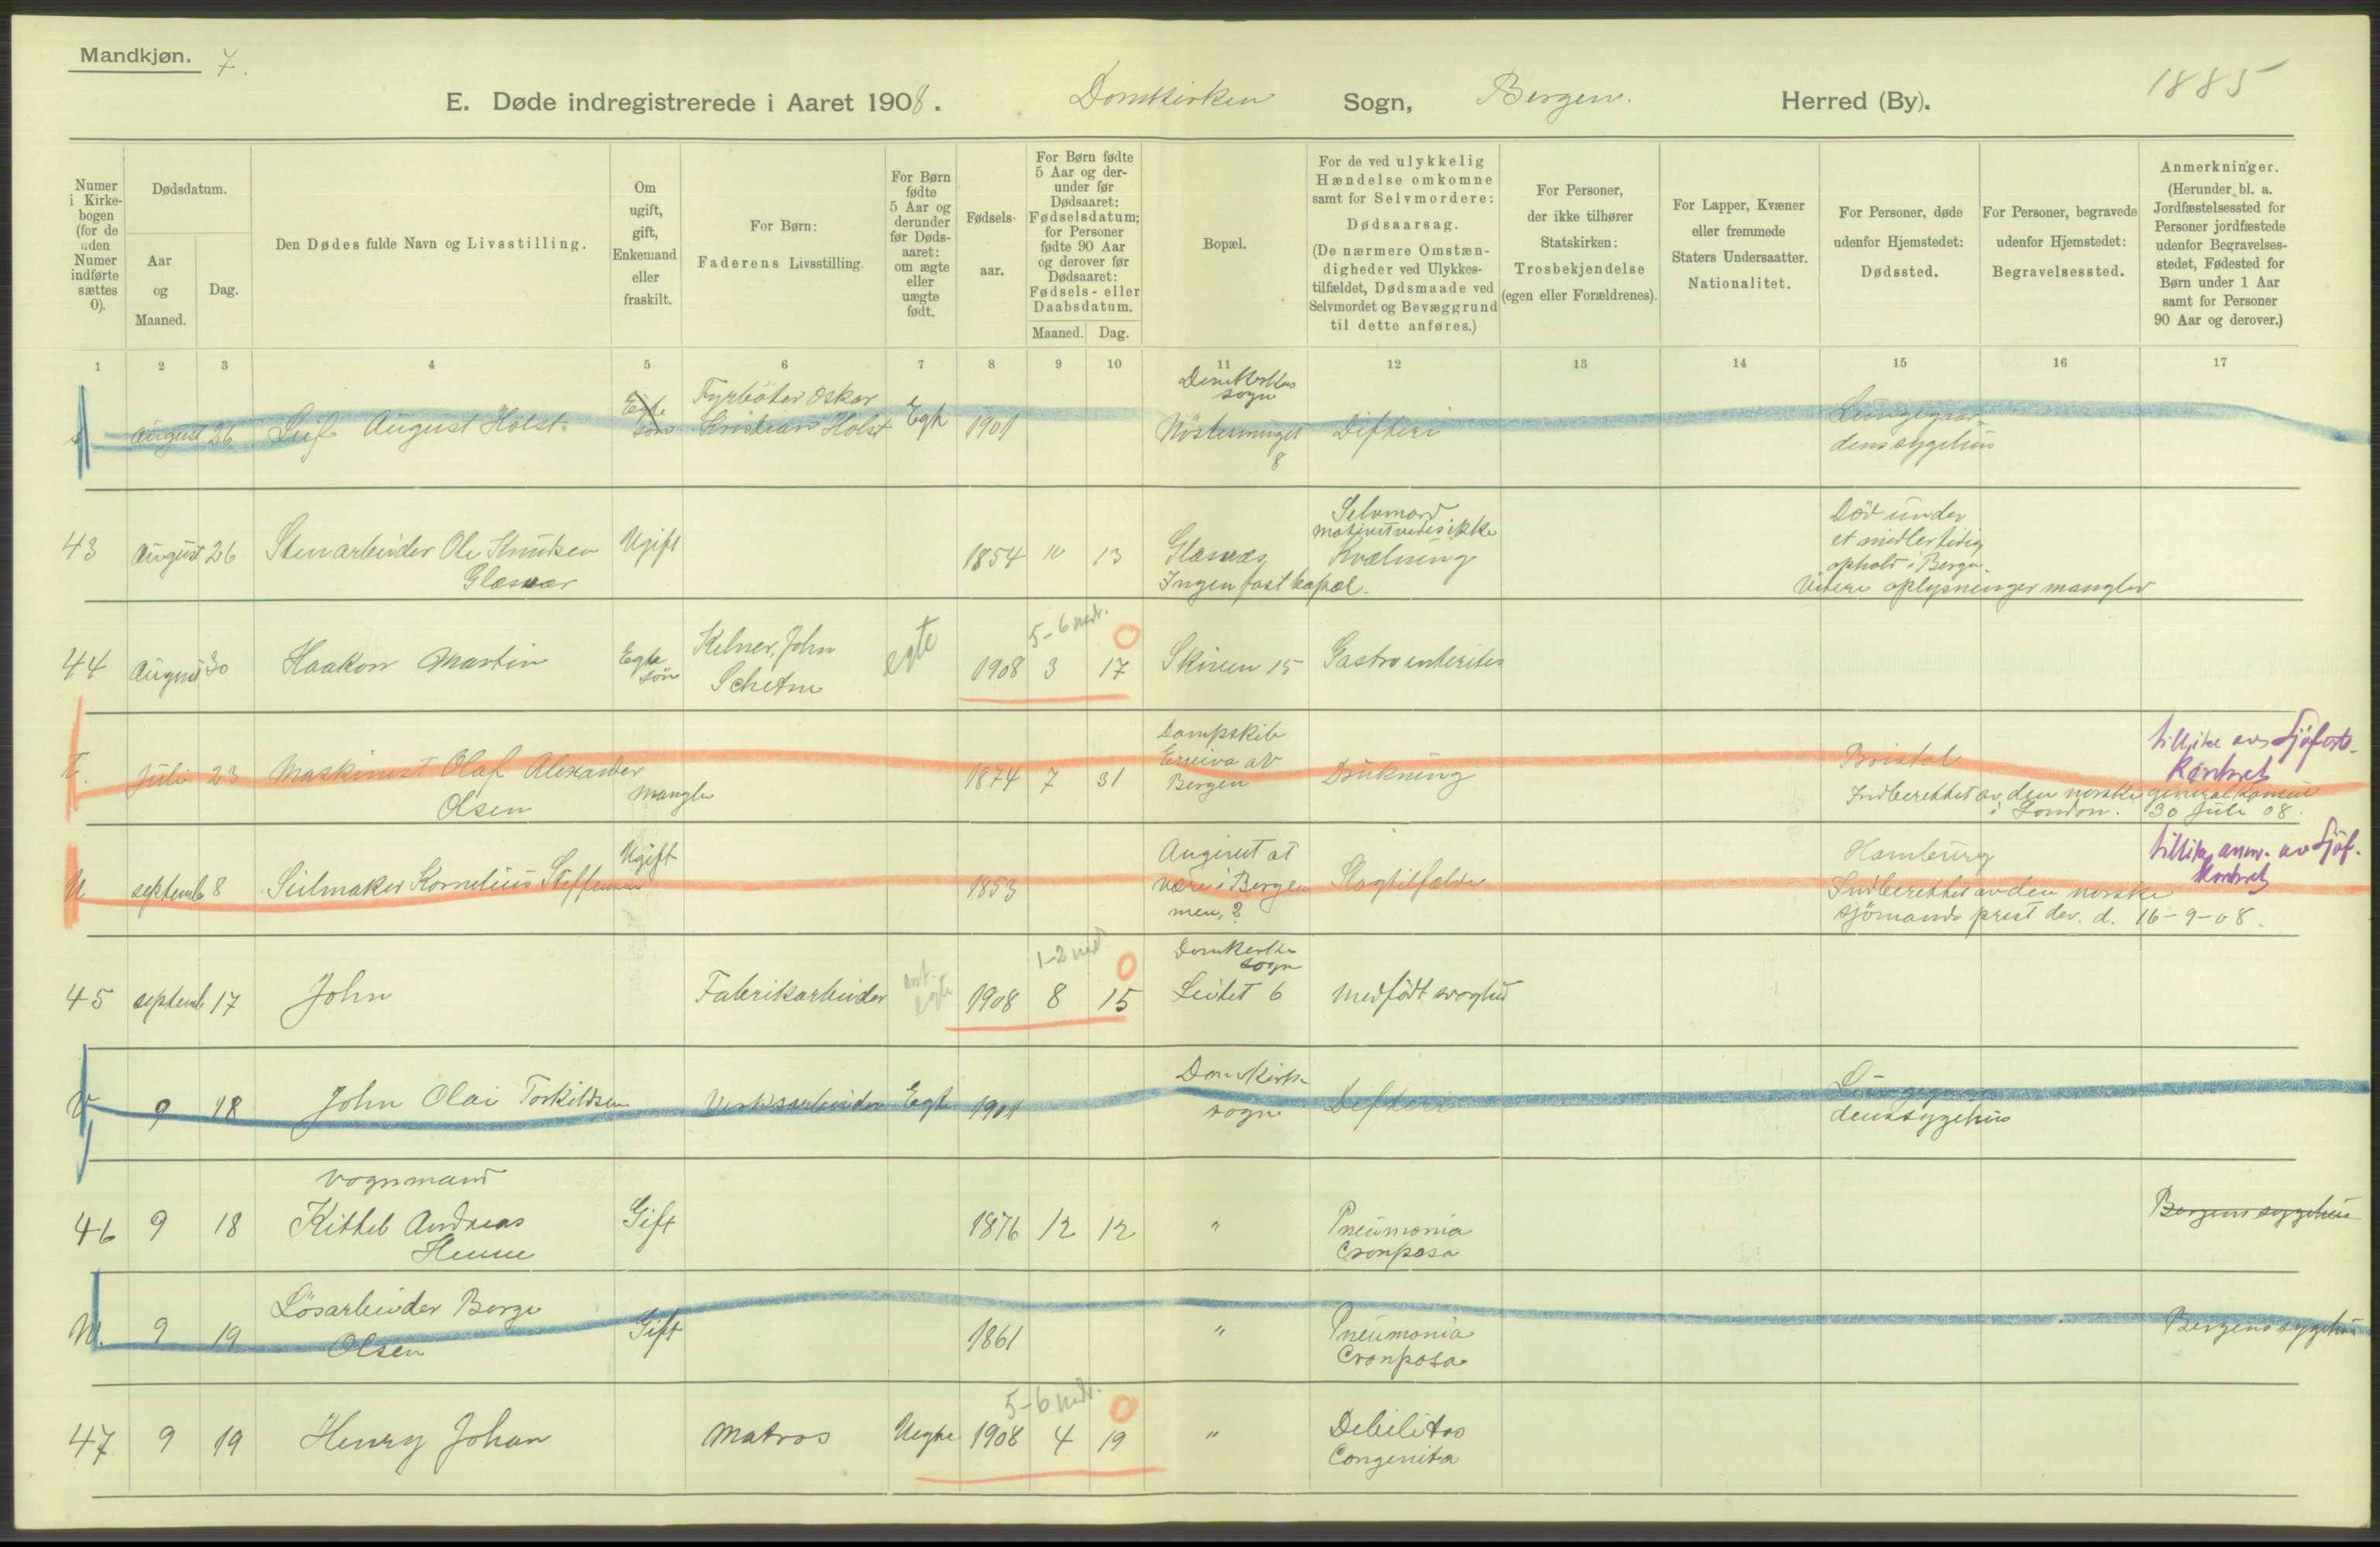 Mandkjøn. 7.
1885
E. Døde indregistrerede i Aaret 1908. Domkirken Sogn, Bergen. Herred (By).
Numer i Kirkebogen (for de uden Numer indførte sættes 0).
Dødsdatum.
Aar og Maaned.
Dag.
Den Dødes fulde Navn og Livsstilling.
Om ugift, gift, Enkemand eller fraskilt.
For Børn: Faderens Livsstilling.
For Børn fødte 5 Aar og derunder før Dødsaaret: om ægte eller uægte født.
Fødselsaar.
For Børn fødte 5 Aar og derunder før Dødsaaret: Fødselsdatum; for Personer fødte 90 Aar og derover før Dødsaaret: Fødsels- eller Daabsdatum.
Maaned. Dag.
Bopæl.
For de ved ulykkelig Hændelse omkomne samt for Selvmordere: Dødsaarsag. (De nærmere Omstændigheder ved Ulykkestilfældet, Dødsmaade ved Selvmordet og Bevæggrund til dette anføres.)
For Personer, der ikke tilhører Statskirken: Trosbekjendelse (egen eller Forældrenes).
For Lapper, Kvæner eller fremmede Staters Undersaatter. Nationalitet.
For Personer, døde udenfor Hjemstedet: Dødssted.
For Personer, begravede udenfor Hjemstedet: Begravelsessted.
Anmerkninger. (Herunder bl. a. Jordfæstelsessted for Personer jordfæstede udenfor Begravelsesstedet, Fødested for Børn under 1 Aar samt for Personer 90 Aar og derover.)
1 2 3 4 5 6 7 8 9 10 11 12 13 14 15 16 17
s August 26 Leif August Holst. Egte søn Fyrböter Oskar Kristian Holst Egte 1901 Domkirkens sogn Nöstesmuget 8 Difteri Lungegaardens sygehus
43 August 26 Stenarbeider Ole Knutsen Glasnær Ugift 1854 10 13 Glasnæs Ingen fast bopæl. Selvmord Motivet vides ikke Kvælning Död under et midlertidig ophold i Bergen. Videre oplysninger mangler
44 August 30 Haakon Martin Egte sön Kelner, John egte 5-6 mdr. 0 1908 3 17 Skiven 15 Gastroenterites
t. Juli 23 Maskinist Olaf Alexander Olsen mangler 1874 7 31 Dampskib av Bergen Drukning Bristol Indberettet av den norske general konsul i London. 30 Juli 08. tillike av Sjöfarts-kontoret
u september 8 Seilmaker Kornelius Steffensen Ugift 1853 Angivet at være i Bergen men, ? Slagtilfælde Hamburg Indberettet av den norske sjömands prest der. d. 16-9-08. tillike anm. av Sjöf. kontoret
45 septemb 17 John Fabrikarbeider ant. egte 1-2 mdr 0 1908 8 15 Domkirken sogn Leitet 6 Medfödt svaghed
v 9 18 John Olai Torkildsen Verksarbeider Egte 1901 Domkirk sogn Difteri Lungegaardenssygehus
46 9 18 Vognmand Kittel Andreas Gift 1876 12 12 " Pneumonia Crouposa Bergens sygehus
W. 9 19 Lösarbeider Berge Olsen Gift 1861 " Pneumonia Crouposa Bergens sygehus
47 9 19 Henry Johan Matros Uegte 5-6 mdr. 0 1908 4 19 " Debilitas Congenita